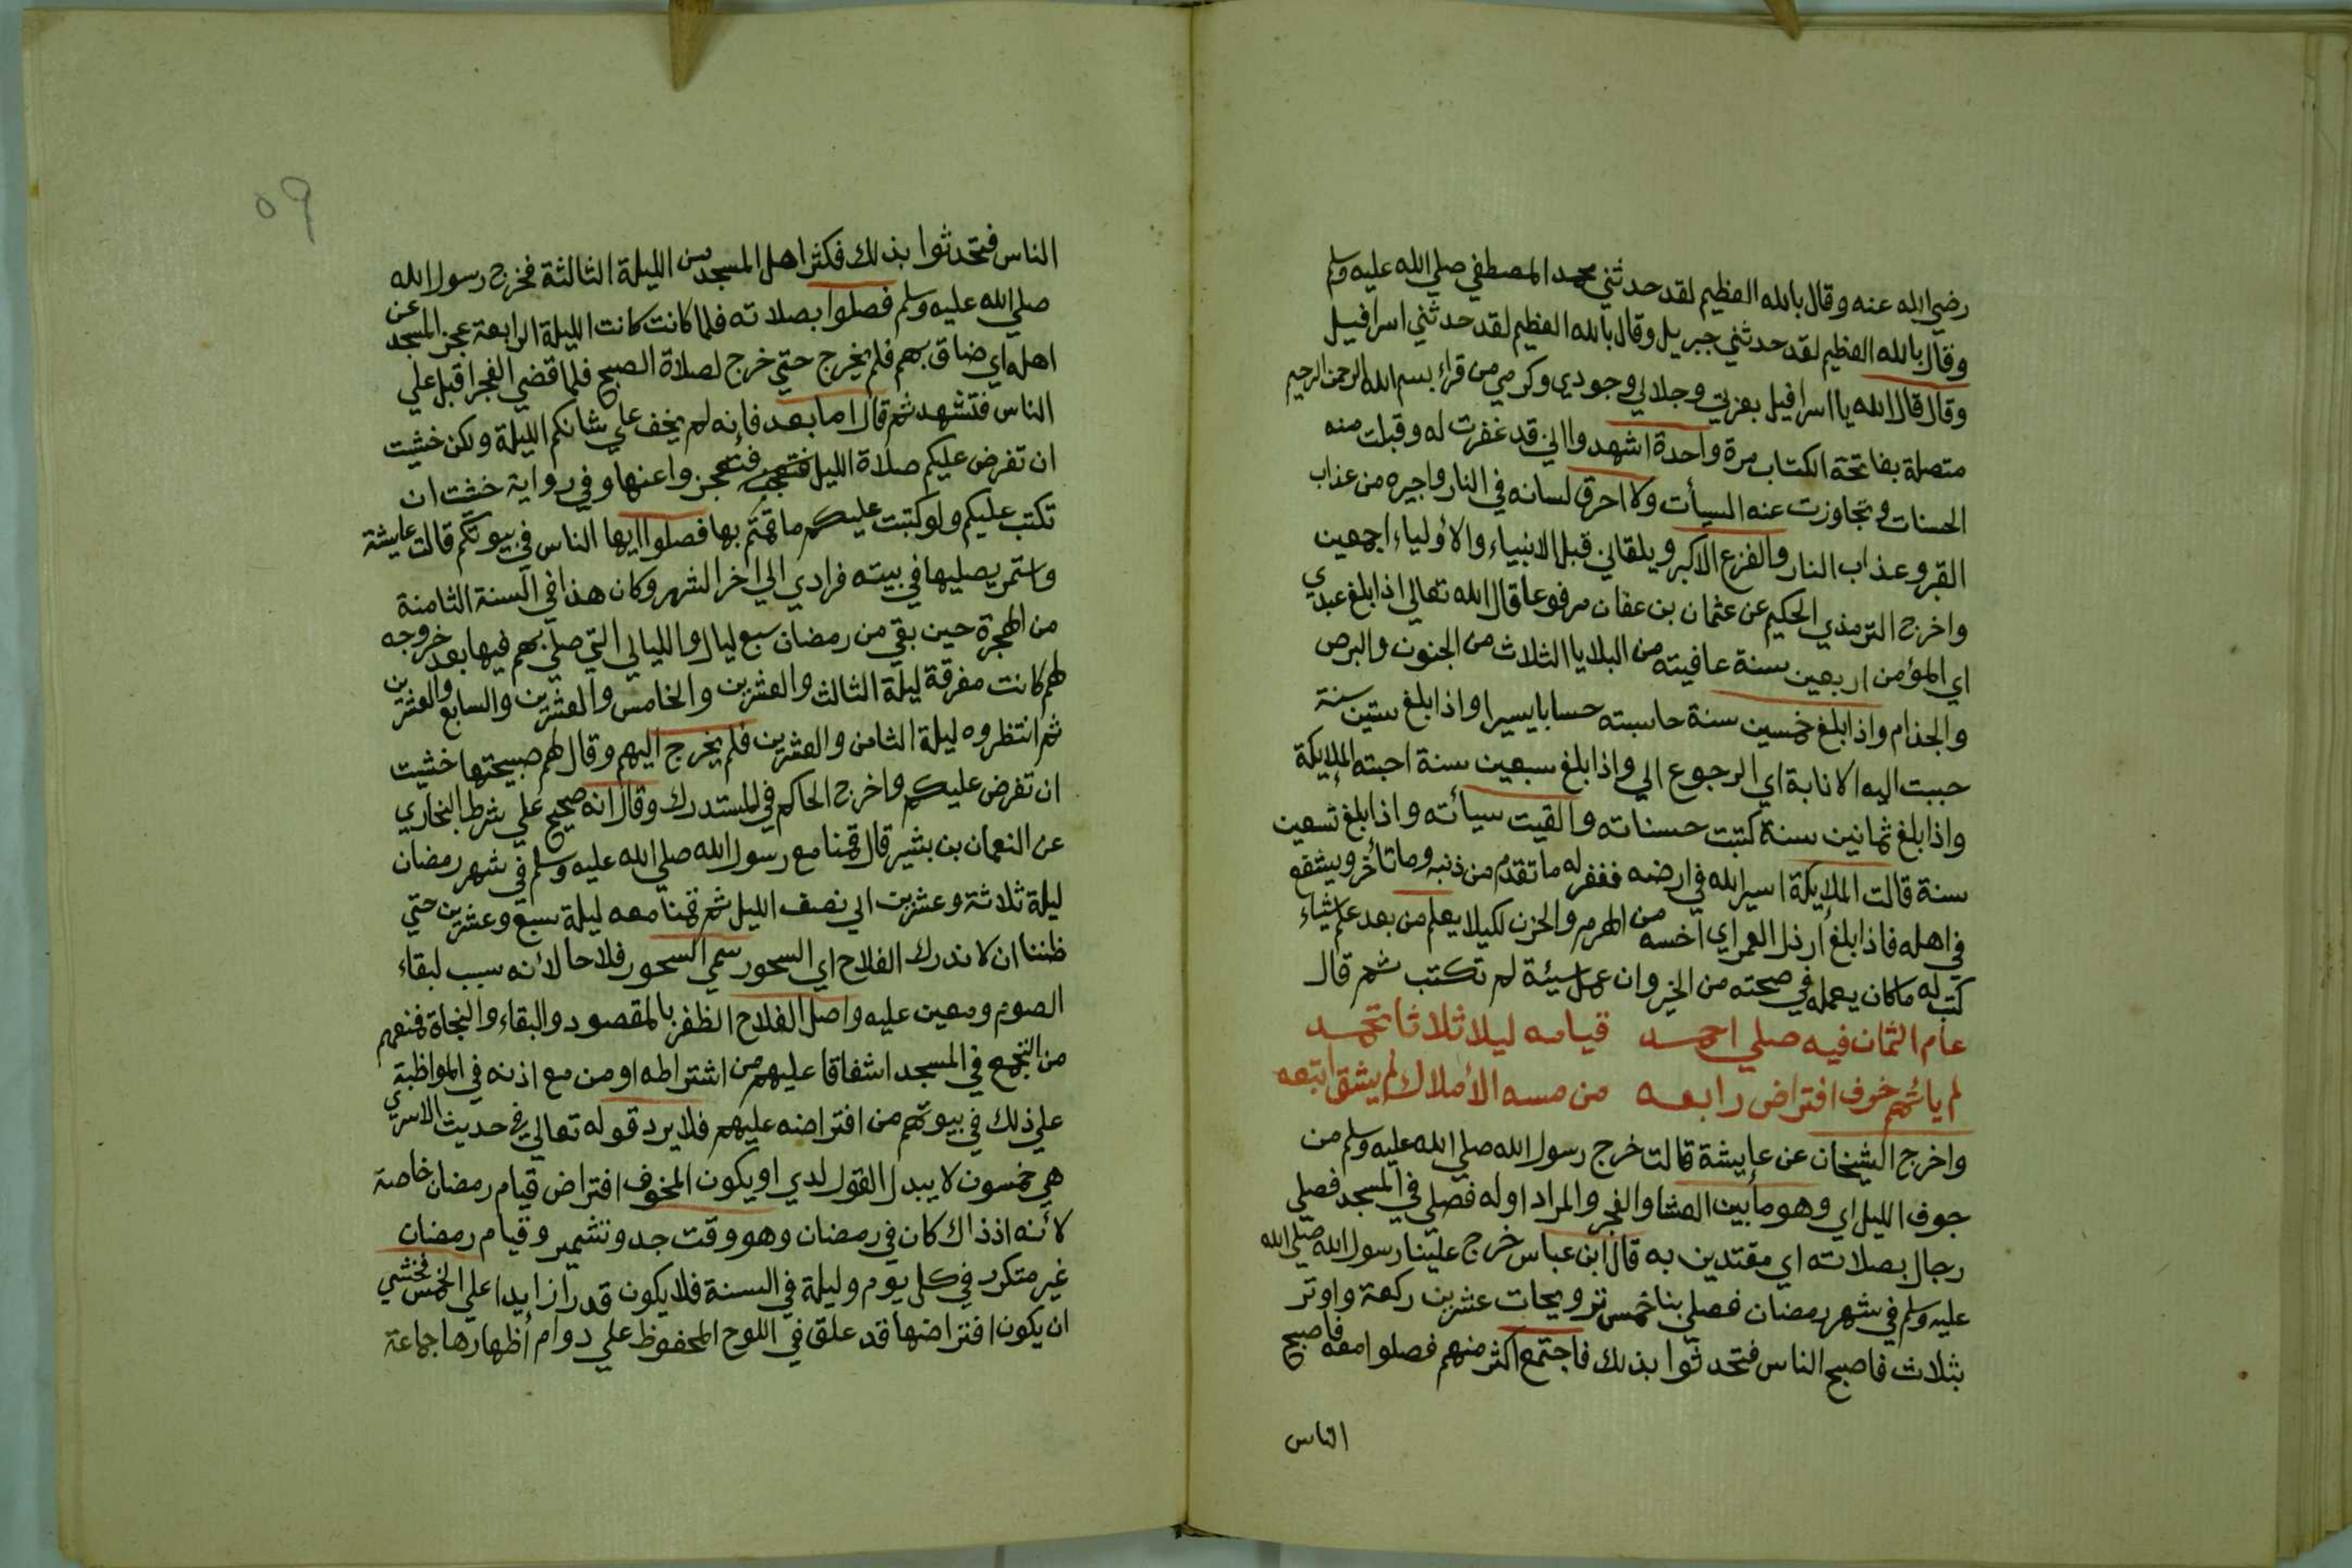 رضي الله عنه وقال بالله العظيم لقد حدثني محمد المصطفي صلي الله عليه وسلم
وقال بالله العظيم لقد حدثني جبريل وقال بالله العظيم لقد حدثني اسرافيل
وقال قال الله يا اسرافيل بعزتي وجلالي وجودي وكرمي من قراء بسم الله الرحمن الرحيم
متصلة بفاتحة الكتاب مرة واحدة اشهدوا اني قد غفرت له وقبلت منه
الحسنات وتجاوزت عنه السيأت ولا احرق لسانه في النار واجيره من عذاب
القبر وعذاب النار والفزع الاكبر ويلقاني قبل الانبياء والاولياء اجمعين
واخرج الترمذي الحكيم عن عثمان بن عفان مرفوعا قال الله تعالي اذا بلغ عبدي
اي المؤمن اربعين سنة عافيته من البلايا الثلاث من الجنون والبرص
والجذام واذا بلغ خمسين سنة حاسبته حسابا يسيرا واذا بلغ ستين سنة
حببت اليه الانابة اي الرجوع الي واذا بلغ سبعين سنة احبته الملايكة
واذا بلغ ثمانين سنة كتبت حسناته والقيت سيأته واذا بلغ تسعين
سنة قالت الملايكة اسير الله في ارضه فغفر له ما تقدم من ذنبه وما تأخر ويشفع
في اهله فاذا بلغ ارذل العمر اي اخسه من الهرم والخرف لكيلا يعلم من بعد علم شياء
كتب له ما كان يعمله في صحته من الخير وان عمل سيئة لم تكتب ثم قال
عام الثمان فيه صلي احمد قيامه ليلا ثلاثا تحمد
لم يأتهم خوف افتراض رابعه من مسه الأملاك لم يشق اتبعه
واخرج الشيخان عن عايشة قالت خرج رسول الله صلي الله عليه وسلم من
جوف الليل اي وهو ما بين العشا والفجر والمراد اوله فصلي في المسجد فصلي
رجال بصلاته اي مقتدين به قال ابن عباس خرج علينا رسول الله صلي الله
عليه وسلم في شهر رمضان فصلي بنا خمس ترويحات عشرين ركعة واوتر
بثلاث فاصبح الناس فتحدثوا بذلك فاجتمع اكثر منهم فصلوا معه فاصبح
الناس
٥٩
الناس فتحدثوا بذلك فكثر اهل المسجد من الليلة الثالثة فخرج رسول الله
صلي الله عليه وسلم فصلوا بصلاته فلما كانت كانت الليلة الرابعة عجز المسجد عن
اهله اي ضاق بهم فلم يخرج حتي خرج لصلاة الصبح فلما قضي الفجر اقبل علي
الناس فتشهد ثم قال اما بعد فانه لم يخف علي شانكم الليلة ولكن خشيت
ان تفرض عليكم صلاة الليل فتعجزوا عنها وفي رواية خشيت ان
تكتب عليكم ولو كتبت عليكم ما قمتم بها فصلوا ايها الناس في بيوتكم قالت عايشة
واستمر يصليها في بيته فرادي الي اخر الشهر وكان هذا في السنة الثامنة
من الهجرة حين بقي من رمضان سبع ليال والليالي التي صلي بهم فيها بعد خروجه
لهم كانت مفرقة ليلة الثالث والعشرين والخامس والعشرين والسابع والعشرين
ثم انتظروه ليلة الثامن والعشرين فلم يخرج اليهم وقال لهم صبيحتها خشيت
ان تفرض عليكم واخرج الحاكم في المستدرك وقال انه صحيح علي شرط البخاري
عن النعمان بن بشير قال قمنا مع رسول الله صلي الله عليه وسلم في شهر رمضان
ليلة ثلاثة وعشرين الي نصف الليل ثم قمنا معه ليلة سبع وعشرين حتي
ظننا ان لا ندرك الفلاح اي السحور سمي السحور فلاحا لأنه سبب لبقاء
الصوم ومعين عليه واصل الفلاح الظفر بالمقصود والبقاء والنجاة فمنعهم
من التجمع في المسجد اشفاقا عليهم من اشتراطه او من مع اذنه في المواظبة
علي ذلك في بيوتهم من افتراضه عليهم فلا يرد قوله تعالي في حديث الاسري
هي خمسون لا يبدل القول لدي او يكون المخوف افتراض قيام رمضان خاصة
لأنه اذ ذاك كان في رمضان وهو وقت جد وتشمير وقيام رمضان
غير متكرر في كل يوم وليلة في السنة فلا يكون قدرا زايدا علي الخمس فخشي
ان يكون افتراضها قد علق في اللوح المحفوظ علي دوام أظهارها جماعة